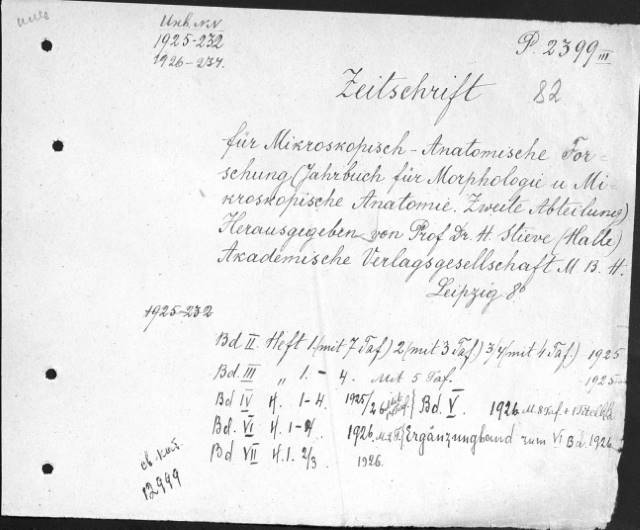 Инв. №№
1925-232
1926-237.
P. 2399 III
Zeitschrift 82
für Mikroskopisch-Anatomische For-
schung (Jahrbuch für Morphologie u Mi-
kroskopische Anatomie. Zweite Abteilung)
Herausgegeben von Prof Dr. H. Stieve (Halle)
Akademische Verlagsgesellschaft M B. H.
Leipzig 8°
1925-232
Bd II. Heft 1. (mit 7 Taf) 2 (mit 3 Taf) 3/4 (mit 4 Taf.) 1925
Bd. III „ 1. - 4. Mit 5 Taf. 1925
Bd IV H. 1-4. 1925/26 Bd. V. 1926.
Bd. VI H. 1-4. 1926. Ergänzungband zum VI Bd. 1926
Bd VII H. 1. 2/3 1926.
св. кат.
12999